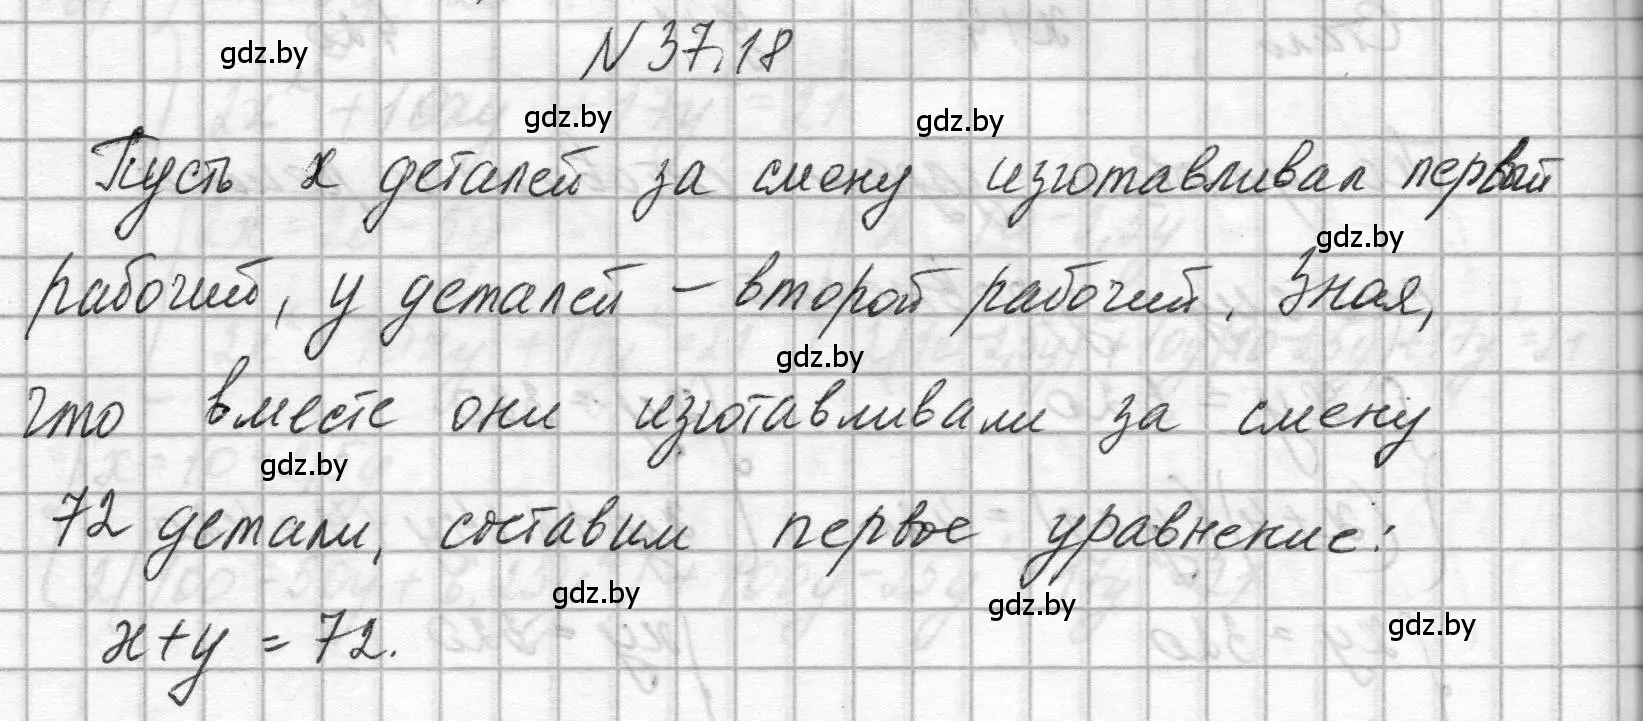 gdz.by
N 37.18
gdz.by gdz.by
Пусть x деталей за смену изготавливал первый
gdz.by
рабочий, y деталей – второй рабочий. Зная,
gdz.by
что вместе они изготавливали за смену
gdz.by
72 детали, составим первое уравнение:
gdz.by gdz.by gdz.by
x+y = 72.